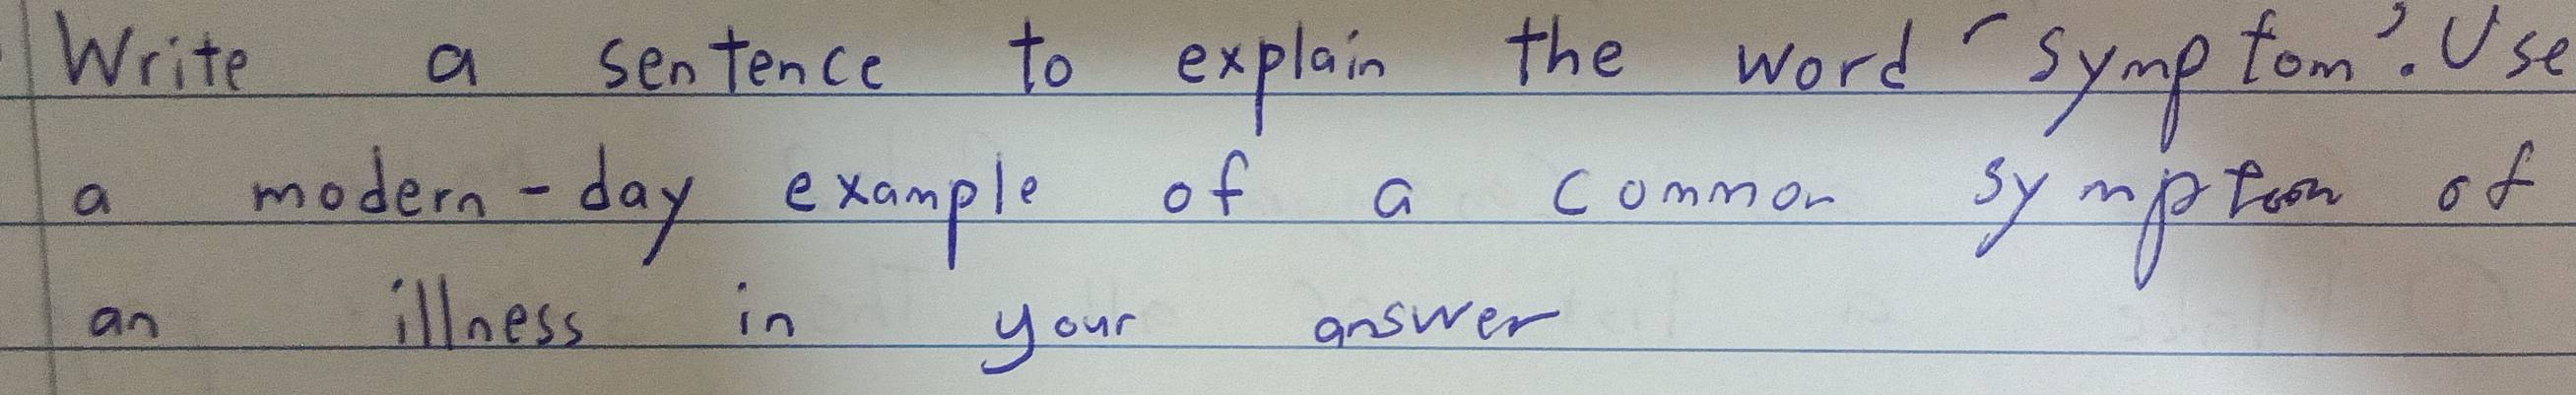 Write a sentence to explain the word 'symptom'. Use
a modern-day example of a common symptom of
an illness in your answer